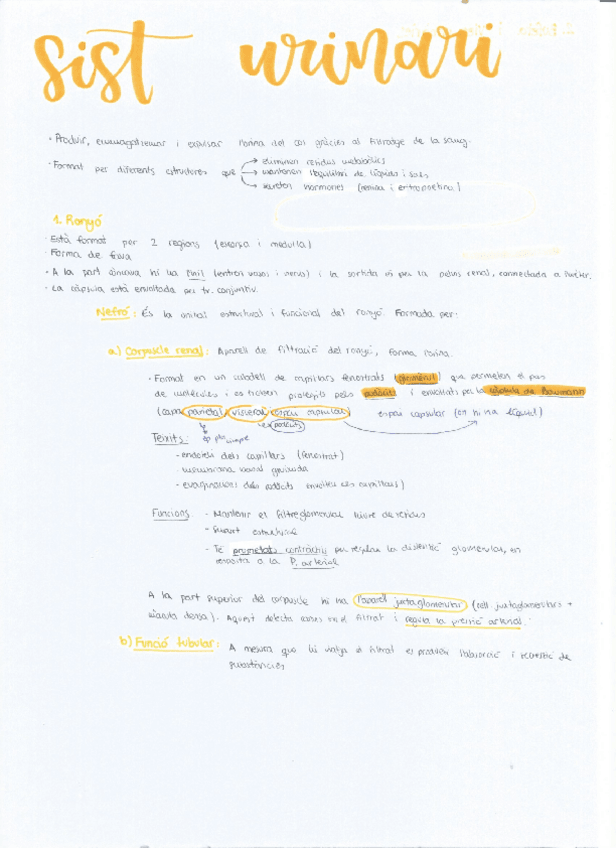 sist urinari
· Produir, emmagatzemar i expulsar l'orina del cos gràcies al filtratge de la sang.
· Format per diferents estructures que → eliminen residus metabòlics
→ mantenen l'equilibri de líquids i sals
→ secreten hormones (renina i eritropoetina)
1. Ronyó
· Està format per 2 regions (escorça i medul·la)
· Forma de fava
· A la part còncava hi ha l'hili (entren vasos i nervis) i la sortida és per la pelvis renal, connectada a l'urèter.
· La càpsula està envoltada per tx. conjuntiu.
Nefró: És la unitat estructural i funcional del ronyó. Formada per:
a) Corpuscle renal: Aparell de filtració del ronyó, forma l'orina.
· Format en un cabdell de capil·lars fenestrats (glomèrul) que permeten el pas
de molècules i es troben protegits pels podòcits i envoltats per la càpsula de Bowmann
(capa parietal, visceral, espai capsular) espai capsular (on hi ha líquid)
ep pla simple
podòcits
Teixits:
- endoteli dels capil·lars (fenestrat)
- membrana basal gruixuda
- evaginacions dels podòcits (envolten els capil·lars)
Funcions: - Mantenir el filtre glomerular lliure de residus
- Suport estructural
- Té propietats contràctils per regular la distensió glomerular, en
resposta a la P. arterial
A la part superior del corpuscle hi ha l'aparell juxtaglomerular (cèl. juxtaglomerulars +
màcula densa). Aquest detecta canvis en el filtrat i regula la pressió arterial.
b) Funció tubular: A mesura que hi viatja el filtrat es produeix l'absorció i secreció de
substàncies